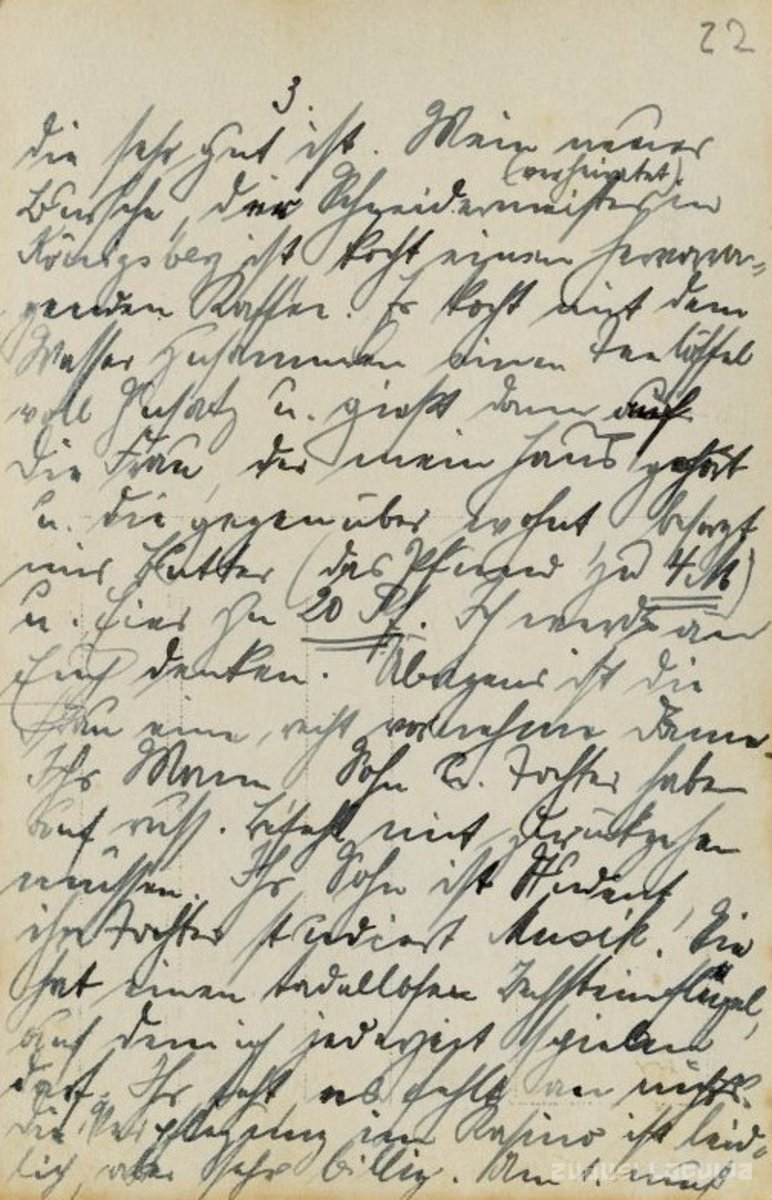 22
3.
die sehr gut ist. Mein neuer
(verheiratet)
Bursche, der Schneidermeister in
Königsberg ist kocht einen hervorra-
genden Kaffee. Er kocht mit dem
Wasser zusammen einen Teelöffel
voll Zusatz u. gießt dann auf.
Die Frau, der mein Haus gehört
u. die gegenüber wohnt, besorgt
mir Butter (das Pfund zu 4 M)
u. Eier zu 20 Pf. Ich werde an
Euch denken. Übrigens ist die
Frau eine recht vornehme Dame.
Ihr Mann, Sohn u. Tochter haben
auf russ. Befehl mit zurückgehen
müssen. Ihr Sohn ist Student,
ihre Tochter studiert Musik! Sie
hat einen tadellosen Bechsteinflügel,
auf dem ich jederzeit spielen
darf. Ihr seht es fehlt an nichts.
Die Verpflegung im Kasino ist leid-
lich, aber sehr billig. Am